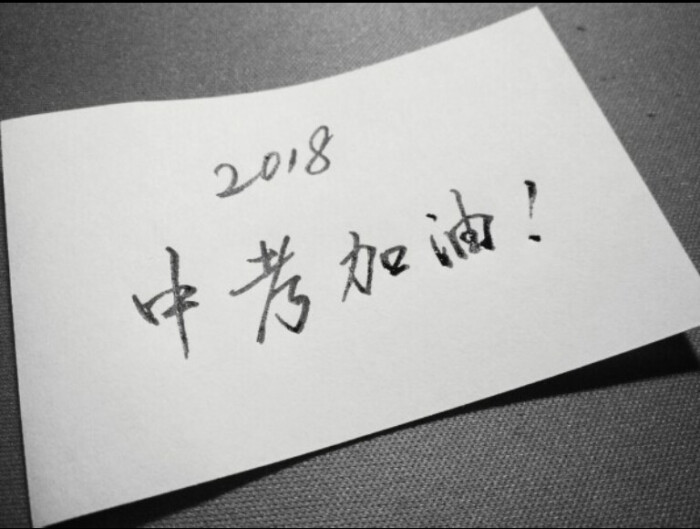 2018
中考加油!